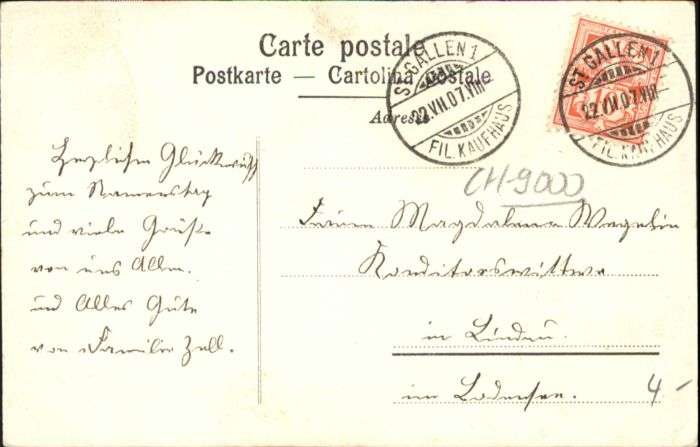 Carte postale
Postkarte — Cartolina postale
Adresse.
ST. GALLEN 1
22.VII.07.VIII
FIL. KAUFHAUS
ST. GALLEN 1
22.VII.07.VIII
FIL. KAUFHAUS
CH-9000
Herzlichen Glückwunsch
zum Namenstag
und viele Grüße
von uns Allen.
und Alles Gute
von Familie Zell.
Frauen Magdalena Wegelin
Konditorswittwe
in Lindau.
im Bodensee.
4-